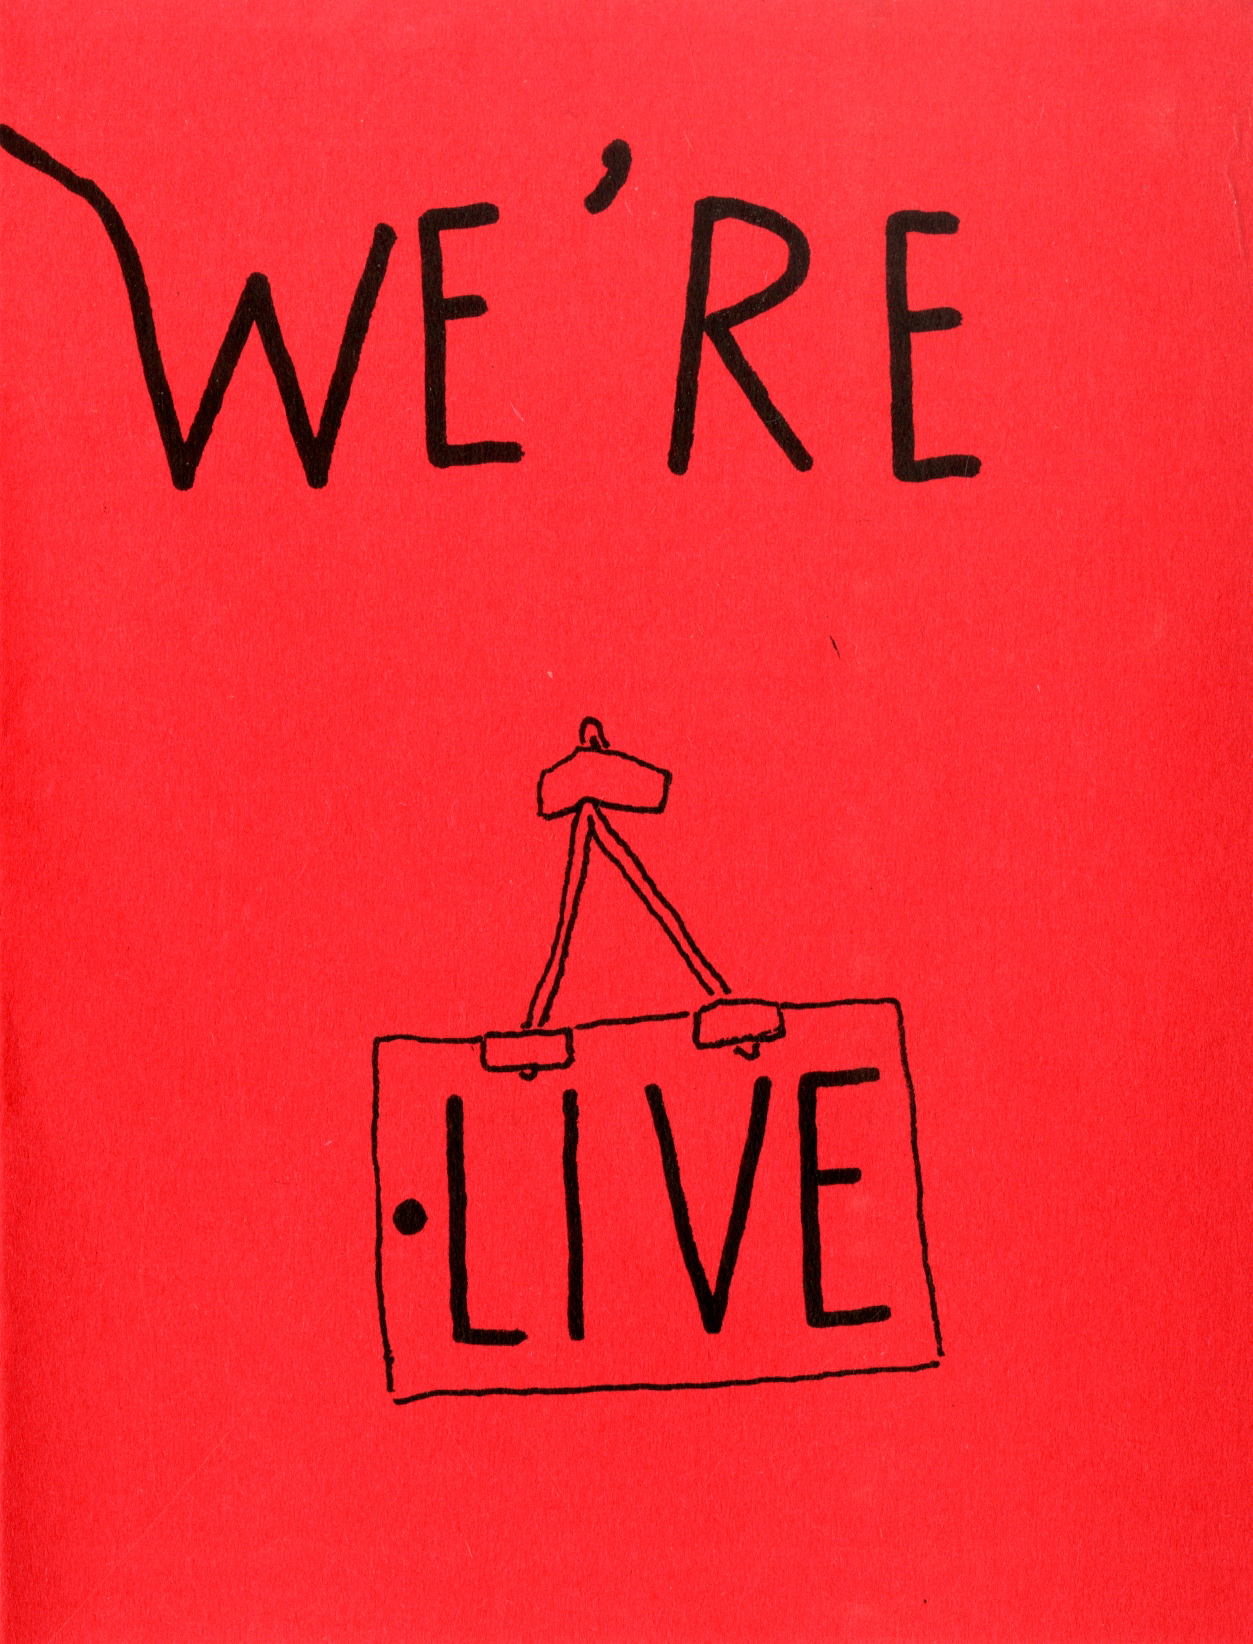 WE'RE
•LIVE